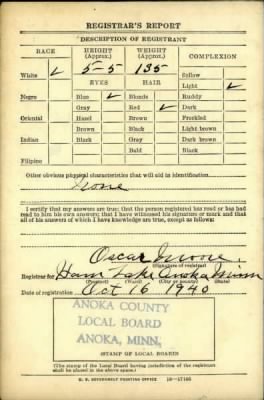 REGISTRAR'S REPORT
DESCRIPTION OF REGISTRANT
RACE HEIGHT (Approx.) WEIGHT (Approx.) COMPLEXION
White ✓ 5-5 135 Sallow
EYES HAIR Light ✓
Negro Blue ✓ Blonde Ruddy
Gray Red ✓ Dark
Oriental Hazel Brown Freckled
Brown Black Light brown
Indian Black Gray Dark brown
Bald Black
Filipino
Other obvious physical characteristics that will aid in identification
None
I certify that my answers are true; that the person registered has read or has had
read to him his own answers; that I have witnessed his signature or mark and that
all of his answers of which I have knowledge are true, except as follows:
Oscar Moore
(Signature of registrar)
Registrar for Ham Lake Anoka Minn
(Precinct) (Ward) (City or County) (State)
Date of registration Oct 16 1940
ANOKA COUNTY
LOCAL BOARD
ANOKA, MINN,
(STAMP OF LOCAL BOARD)
(The stamp of the Local Board having jurisdiction of the registrant
shall be placed in the above space.)
U. S. GOVERNMENT PRINTING OFFICE 16-17105